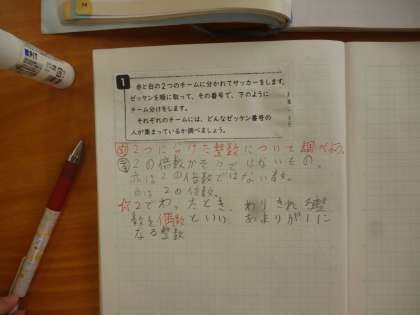 1 赤と白の2つのチームに分かれてサッカーをします。
ゼッケンを順に取って、その番号で、下のように
チーム分けをします。
それぞれのチームには、どんなゼッケン番号の
人が集まっているか調べましょう。
2つに分けた整数について調べよう。
2の倍数かそうではないもの。
赤は2の倍数ではない数。
白は2の倍数。
☆2でわったとき、わりきれる整
数を偶数といい、あまりが1に
なる整数